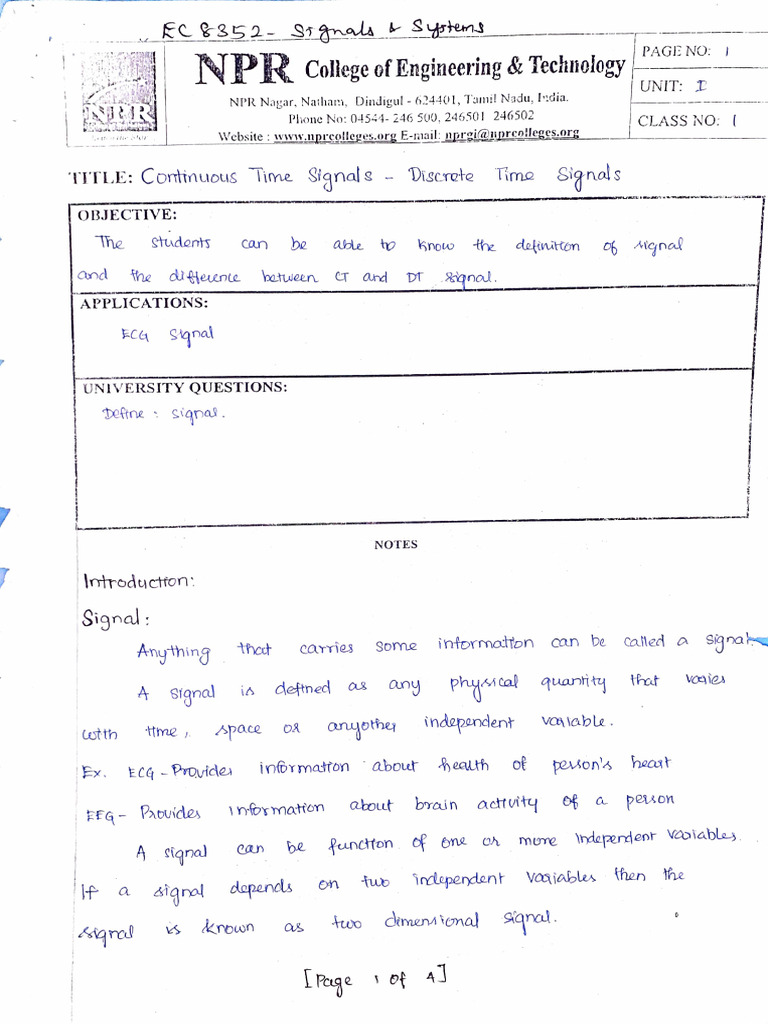 EC 8352 - Signals & Systems
NPR College of Engineering & Technology
NPR Nagar, Natham, Dindigul - 624401, Tamil Nadu, India.
Phone No: 04544- 246 500, 246501 246502
Website : www.nprcolleges.org E-mail: nprgi@nprcolleges.org
PAGE NO: 1
UNIT: I
CLASS NO: 1
NPR
TITLE: Continuous Time Signals - Discrete Time Signals
OBJECTIVE:
The students can be able to know the definition of signal
and the difference between CT and DT signal.
APPLICATIONS:
ECG Signal
UNIVERSITY QUESTIONS:
Define : Signal.
NOTES
Introduction:
Signal:
Anything that carries some information can be called a signal.
A signal is defined as any physical quantity that varies
with time, space or anyother independent variable.
Ex. ECG - Provides information about health of person's heart
EEG - Provides information about brain activity of a person
A signal can be function of one or more independent variables.
If a signal depends on two independent variables then the
signal is known as two dimensional signal.
[Page 1 of 4]